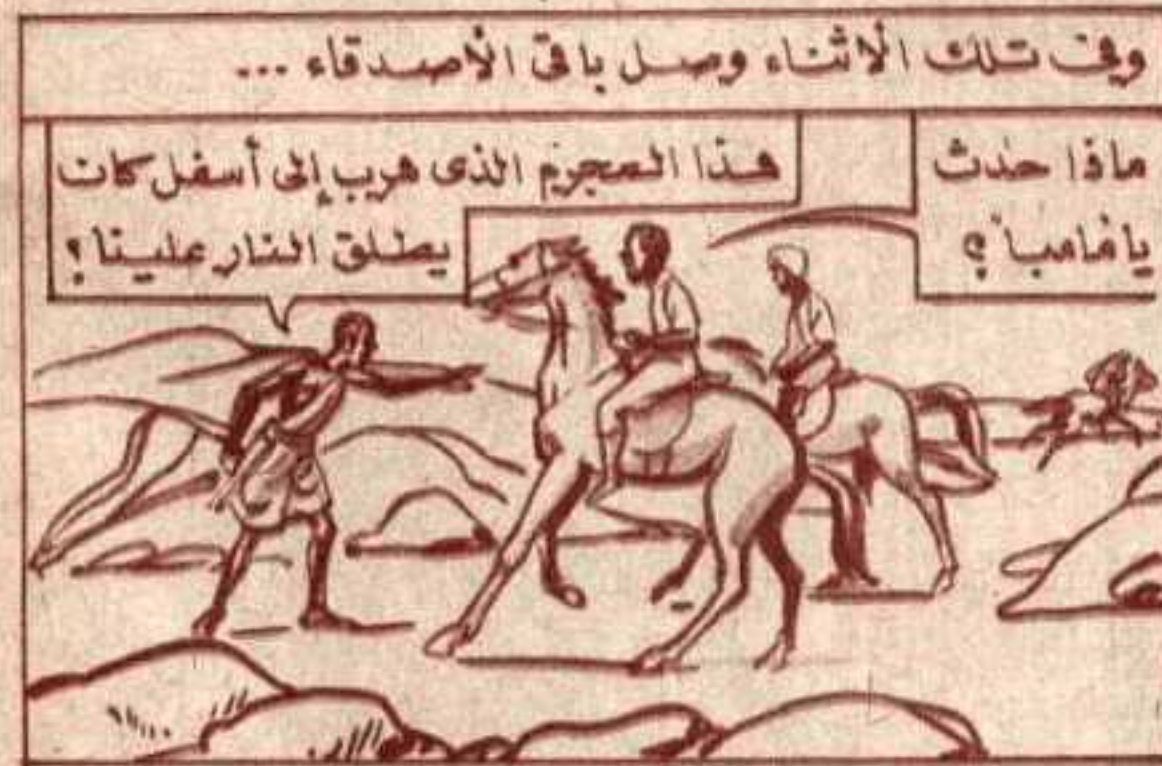 وفى تلك الأثناء وصل باقى الأصدقاء ...
ماذا حدث
يا غامبا ؟
هذا المجرم الذى هرب إلى أسفل كان
يطلق النار علينا ؟